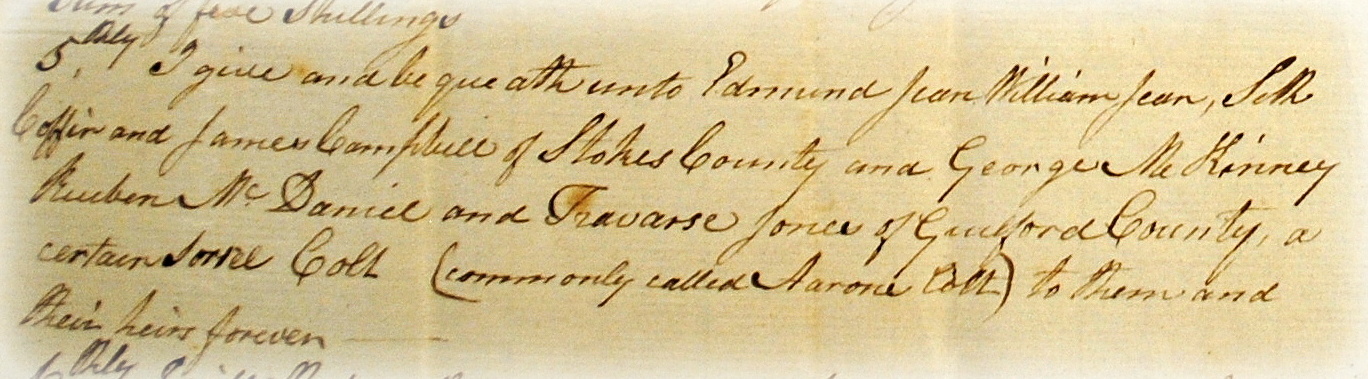 Sum of five Shillings
5.thly I give and bequeath unto Edmund Jean William Jean, Seth
Coffin and James Campbell of Stokes County and George McKinney
Reuben Mc Daniel and Travarse Jones of Guilford County, a
certain Sorrel Colt (commonly called Aarons Colt) to them and
their heirs forever
thly